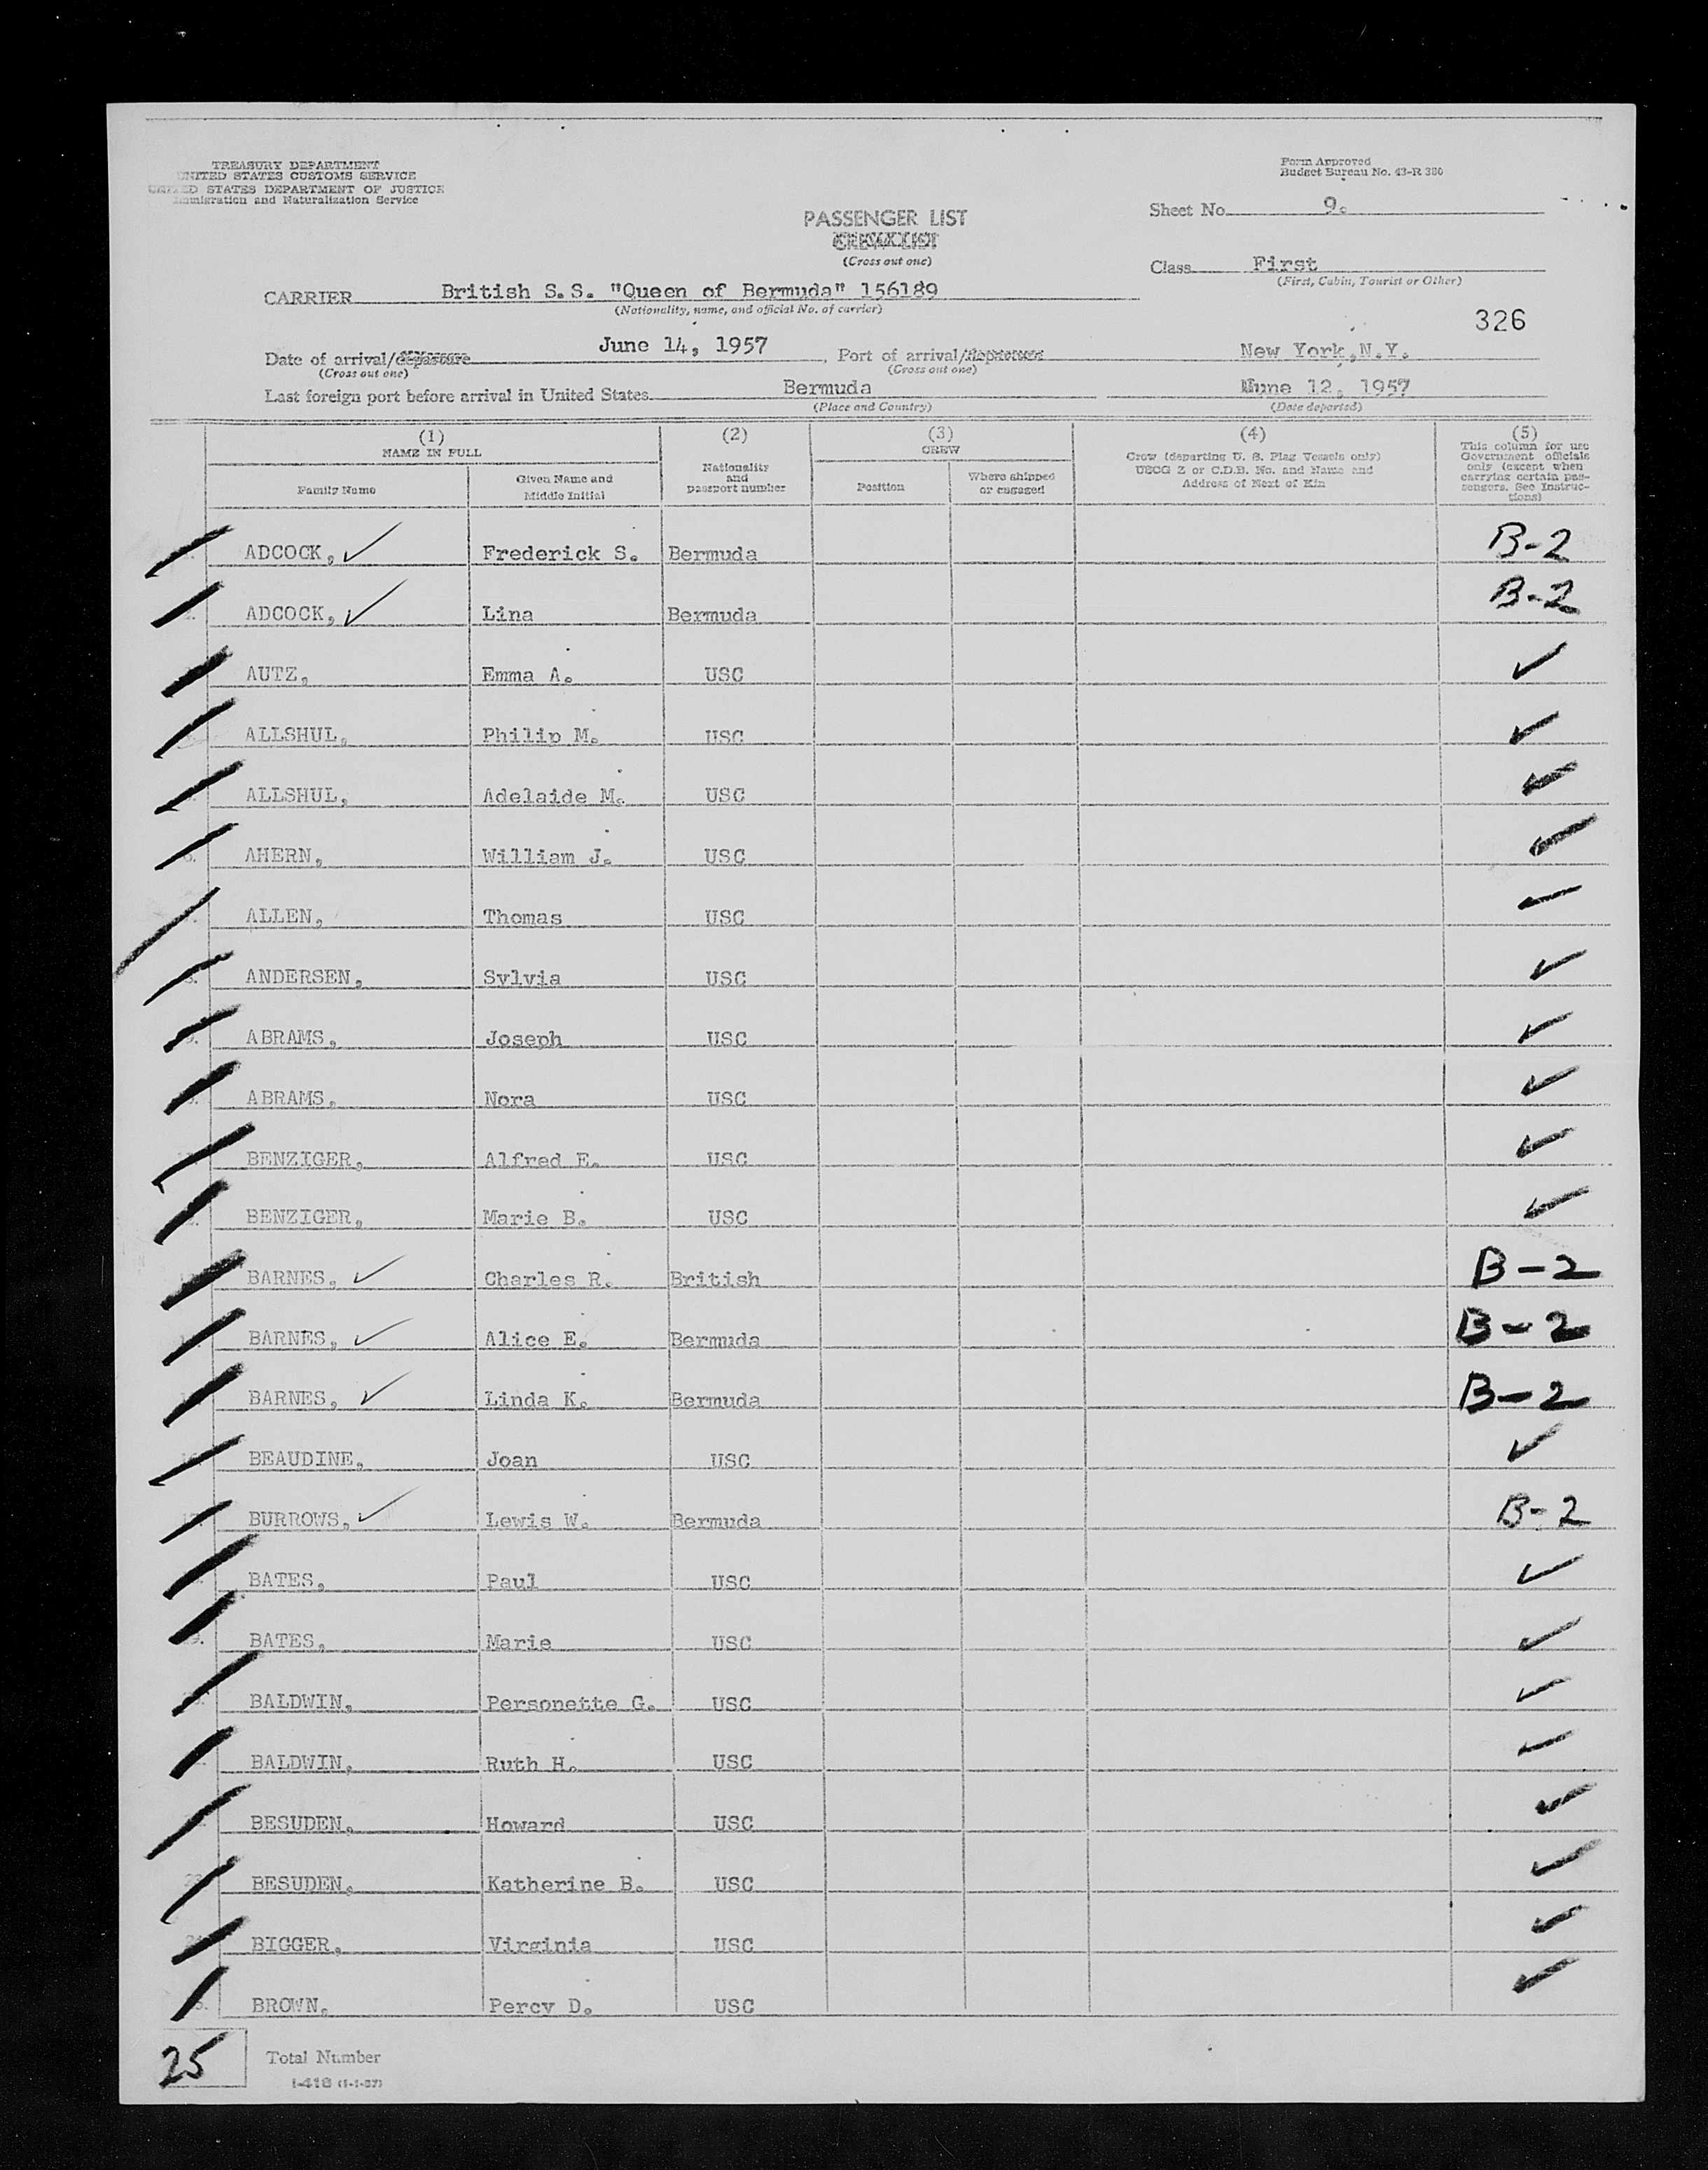 TREASURY DEPARTMENT
UNITED STATES CUSTOMS SERVICE
UNITED STATES DEPARTMENT OF JUSTICE
Immigration and Naturalization Service
Form Approved
Budget Bureau No. 43-R 380
Sheet No. 9.
PASSENGER LIST
CREW LIST
(Cross out one)
Class First
(First, Cabin, Tourist or Other)
CARRIER British S.S. "Queen of Bermuda" 156189
(Nationality, name, and official No. of carrier)
326
Date of arrival/departure June 14, 1957, Port of arrival/departure New York,N.Y.
(Cross out one) (Cross out one)
Last foreign port before arrival in United States Bermuda June 12, 1957
(Place and Country) (Date departed)
(1) (2) (3) (4) (5)
NAME IN FULL
Family Name
Given Name and Middle Initial
Nationality and passport number
CREW
Position
Where shipped or engaged
Crew (departing U. S. Flag Vessels only)
USCG Z or C.D.B. No. and Name and
Address of Next of Kin
This column for use
Government officials
only (except when
carrying certain pas-
sengers. See Instruc-
tions)
ADCOCK, ✓ Frederick S. Bermuda B-2
ADCOCK, ✓ Lina Bermuda B-2
AUTZ, Emma A. USC ✓
ALLSHUL, Philip M. USC ✓
ALLSHUL, Adelaide M. USC ✓
6. AHERN, William J. USC ✓
ALLEN, Thomas USC ✓
8. ANDERSEN, Sylvia USC ✓
9. ABRAMS, Joseph USC ✓
ABRAMS, Nora USC ✓
BENZIGER, Alfred E. USC ✓
BENZIGER, Marie B. USC ✓
BARNES, ✓ Charles R. British B-2
BARNES, ✓ Alice E. Bermuda B-2
BARNES, ✓ Linda K. Bermuda B-2
BEAUDINE, Joan USC ✓
17. BURROWS, ✓ Lewis W. Bermuda B-2
BATES, Paul USC ✓
19. BATES, Marie USC ✓
BALDWIN, Personette G. USC ✓
BALDWIN, Ruth H. USC ✓
BESUDEN, Howard USC ✓
BESUDEN, Katherine B. USC ✓
BIGGER, Virginia USC ✓
BROWN, Percy D. USC ✓
25 Total Number
I-418 (1-1-57)